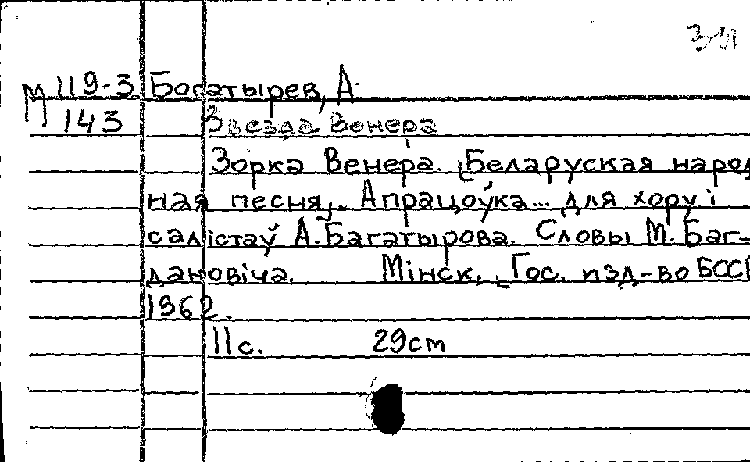 М 119-3 Богатырев, А.
143 Звезда Венера
Зорка Венера. [Беларуская народ
ная песня]. Апрацоўка... для хору і
салістаў А. Багатырова. Словы М. Баг-
дановіча. Мінск, [Гос. изд-во БССР
1962.
11 с. 29cm